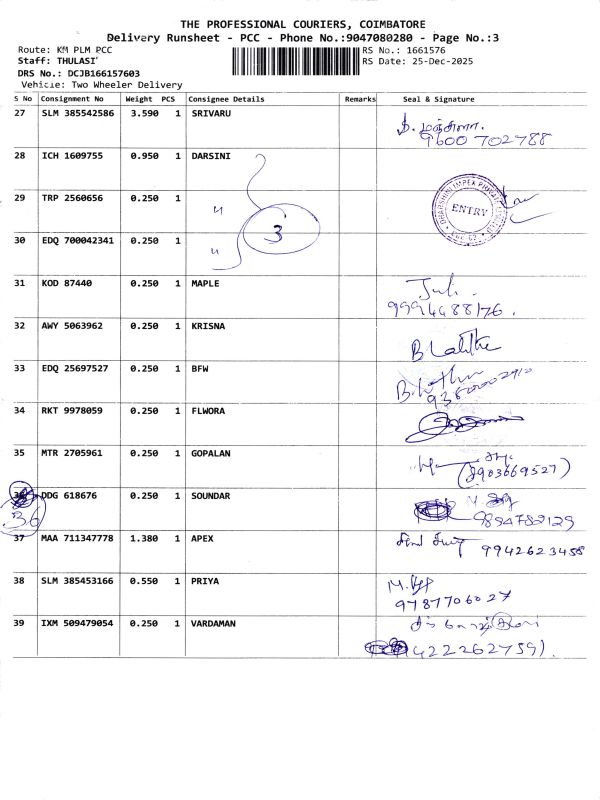 THE PROFESSIONAL COURIERS, COIMBATORE
Delivery Runsheet - PCC - Phone No.:9047080280 - Page No.:3
Route: KM PLM PCC RS No.: 1661576
Staff: THULASI RS Date: 25-Dec-2025
DRS No.: DCJB166157603
Vehicle: Two Wheeler Delivery
S No Consignment No Weight PCS Consignee Details Remarks Seal & Signature
27 SLM 385542586 3.590 1 SRIVARU
9600 702788
28 ICH 1609755 0.950 1 DARSINI
29 TRP 2560656 0.250 1 "
ENTRY
30 EDQ 700042341 0.250 1 " 3
31 KOD 87440 0.250 1 MAPLE
9994688176.
32 AWY 5063962 0.250 1 KRISNA
33 EDQ 25697527 0.250 1 BFW
34 RKT 9978059 0.250 1 FLWORA
35 MTR 2705961 0.250 1 GOPALAN
(8903669527)
DDG 618676 0.250 1 SOUNDAR
36 9894782129
37 MAA 711347778 1.380 1 APEX
9942623458
38 SLM 385453166 0.550 1 PRIYA
9787706027
39 IXM 509479054 0.250 1 VARDAMAN
422262759).